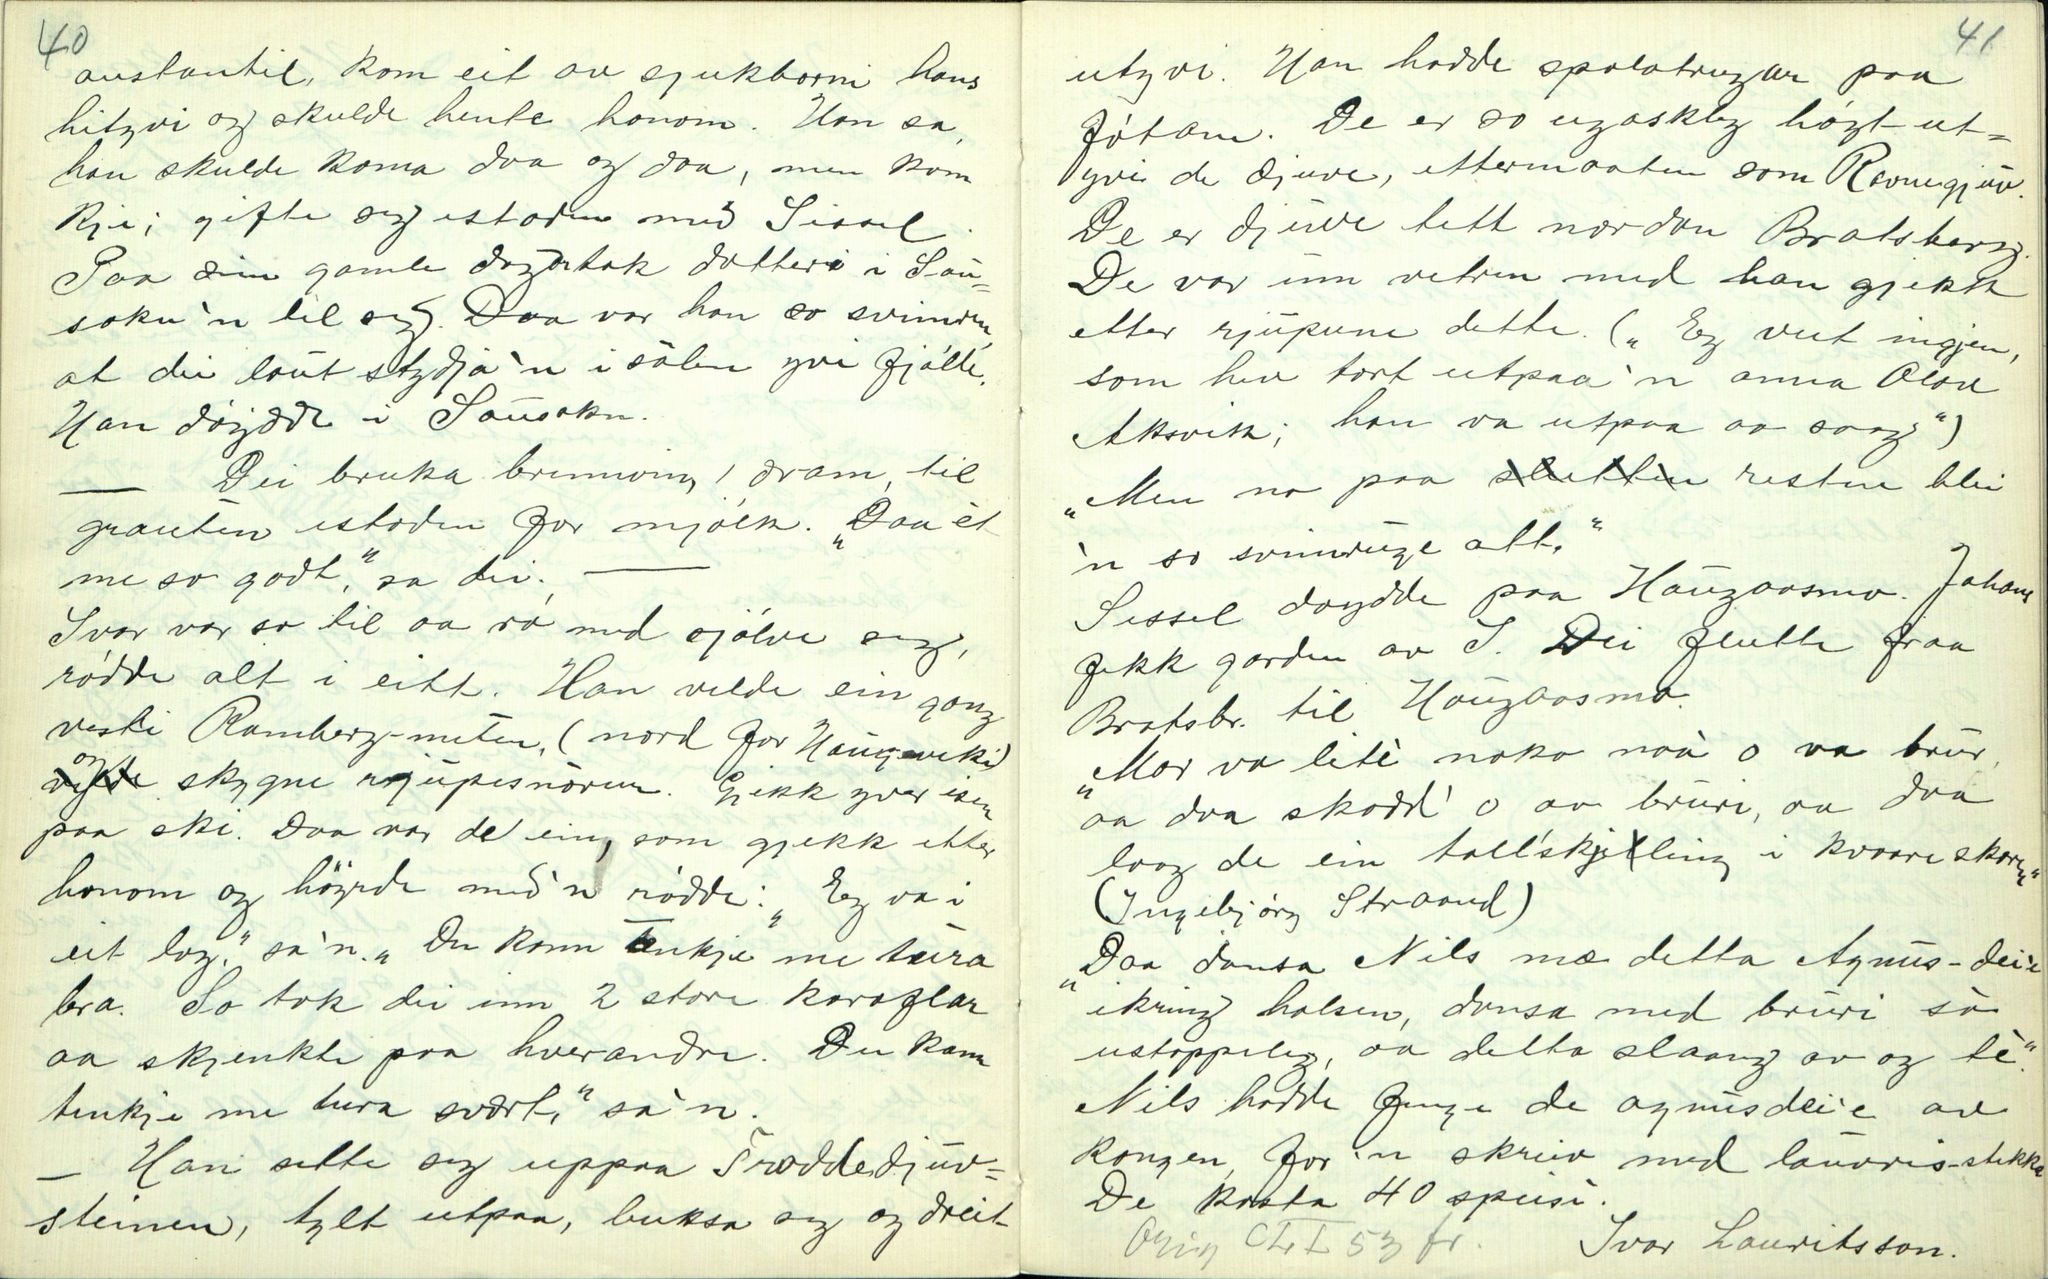 40
austantil, kom eit av sjukborni hans
hityvi og skulde hente honom. Han sa,
han skulde koma daa og daa, men kom
kje; gifte seg istaden med Sissel.
Paa sine gamle dagar tok dotteri i Sau=
sokn'n til seg. Daa var han so svimren,
at dei laut stydja'n i sålen yvi fjølle.
Han døydde i Sausokn.
— Dei bruka brennvin, dram, til
grauten istaden for mjølk. „Daa èt
me so godt," sa dei. —
Ivar var so til aa rø med sjølve seg,
rødde alt i eitt. Han vilde ein gong
vesti Ramberg-nuten, (nord for Haugeviki)
og skygne rjupesnòrur. Gjekk yver isen
paa ski. Daa var de ein, som gjekk etter
honom og høyrde med'n rødde: „Eg va i
eit lag," sa'n. „Du kann tenkje me tura
bra. So tok dei inn 2 store karaflar
aa skjenkte paa hverandre. Du kann
tenkje me tura svært," sa'n.
— Han sette seg uppaa Træddedjuv=
steinen, tylt utpaa, buksa seg og dreit
41
utyvi. Han hadde spalatrugur paa
føtane. De er so ugaskleg høgt ut=
yvi de djuve, ettermaaten som Ravnegjuv.
De er djuve tett nordan Bratsberg.
De var um vetren med han gjekk
etter rjupune dette. („Eg veit ingjen,
som hev tort utpaa'n anna Olav
Aksvik; han va utpaa aa saag")
„Men no paa slutten resten blei
'n so svimruge alt."
Sissel døydde paa Haugaasmo. Johans
fekk garden av S. Dei flutte fraa
Bratsbr. til Haugaasmo.
„Mor va lite noko naa o va brur,
aa daa skodd' o av bruri, aa daa
laag de ein tall'skjelling i kvaare skoren"
(Ingebjørg Straand)
„Daa dansa Nils mæ detta Agnus-dei'e
ikring halsen, dansa med bruri so
ustoppeleg, aa detta slaang av og te."
Nils hadde fenge de agnusdei'e av
kongen, for 'n skreiv med lauvris-stikka
De kosta 40 speisi.
Orig CLI 53 fr. Ivar Lauritsson.